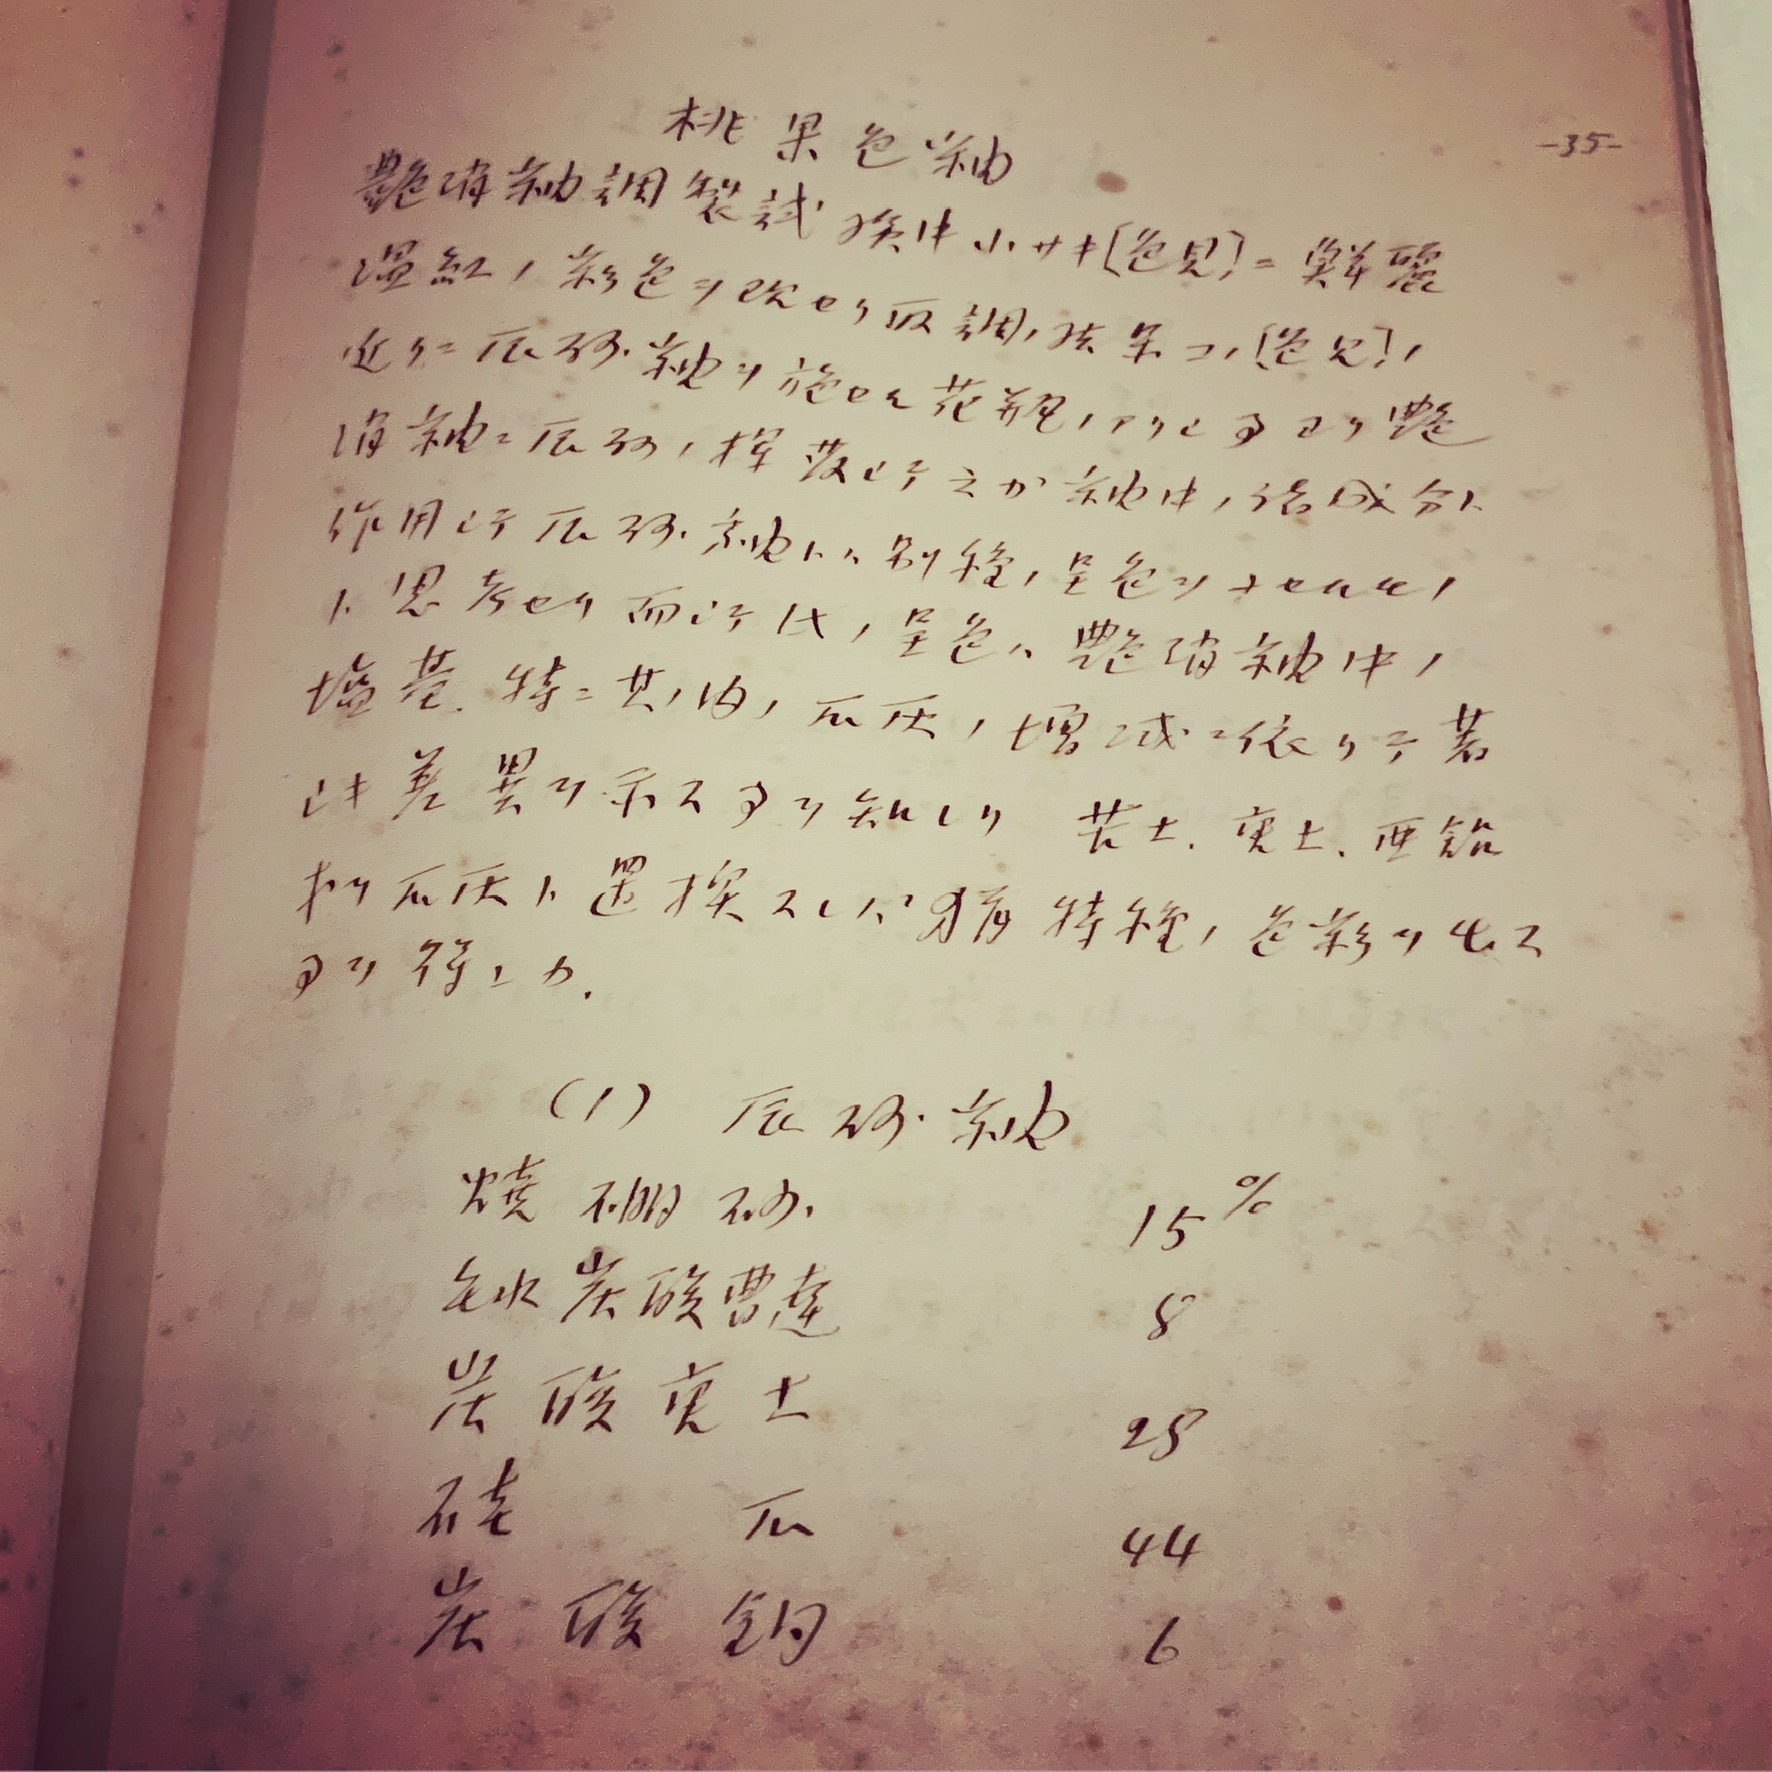 -35-
桃果色釉
艶消釉調製試験中小サキ[色見]ニ鮮麗
濃紅ノ彩色ヲ改セリ 調 結果コノ[色見]ノ
近クニ辰砂釉ヲ施セル花瓶ノアリシヲ以テ艶
消釉ニ辰砂ノ揮発シテ之ガ釉中ノ諸成分ト
作用シテ辰砂釉トハ別種ノ呈色ヲナセルモノ
ト思考セリ而シテ代ノ呈色ハ艶消釉中ノ
塩基.特ニ其ノ内ノ石灰ノ増減ニ依リテ著
シキ差異ヲ示スヲ知レリ 苦土.重土.亜鉛
ヲ石灰ト置換スレバ猶特種ノ色彩ヲ出ス
ヲ得ンカ.
(1) 辰砂釉
焼硼砂 15%
無水炭酸曹達 8
炭酸重土 28
硅石 44
炭酸銅 6